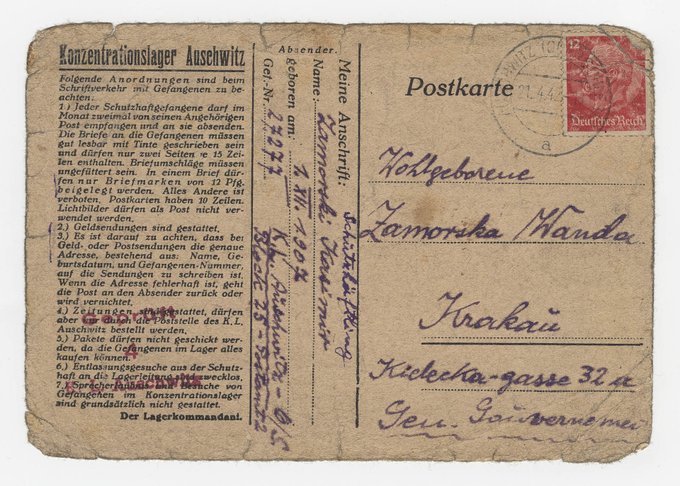 Konzentrationslager Auschwitz
Folgende Anordnungen sind beim
Schriftverkehr mit Gefangenen zu be-
achten:
1.) Jeder Schutzhaftgefangene darf im
Monat zweimal von seinen Angehörigen
Post empfangen und an sie absenden.
Die Briefe an die Gefangenen müssen
gut lesbar mit Tinte geschrieben sein
und dürfen nur zwei Seiten je 15 Zei-
len enthalten. Briefumschläge müssen
ungefüttert sein. In einem Brief dür-
fen nur Briefmarken von 12 Pfg.
beigelegt werden. Alles Andere ist
verboten. Postkarten haben 10 Zeilen.
Lichtbilder dürfen als Post nicht ver-
wendet werden.
2.) Geldsendungen sind gestattet.
3.) Es ist darauf zu achten, dass bei
Geld- oder Postsendungen die genaue
Adresse, bestehend aus: Name, Ge-
burtsdatum, und Gefangenen-Nummer,
auf die Sendungen zu schreiben ist.
Wenn die Adresse fehlerhaft ist, geht
die Post an den Absender zurück oder
wird vernichtet.
4.) Zeitungen sind gestattet, dürfen
aber nur durch die Poststelle des K.L.
Auschwitz bestellt werden.
5.) Pakete dürfen nicht geschickt wer-
den, da die Gefangenen im Lager alles
kaufen können.
6.) Entlassungsgesuche aus der Schutz-
haft an die Lagerleitung sind zwecklos.
7.) Sprecherlaubnis und Besuche von
Gefangenen im Konzentrationslager
sind grundsätzlich nicht gestattet.
Der Lagerkommandant.
Geprüft
4
K. L. Auschwitz
Absender:
Meine Anschrift: Schutzhäftling
Name: Zamorski Kasimir
geboren am: 1. XII. 1907
Gef.-Nr. 27277 K.L. Auschwitz - O/S.
Block 25 - Postamt 2
Postkarte
21.4.42
a
12
Deutsches Reich
Wohlgeborene
Zamorska Wanda
Krakau
gasse 32 a
Gen. Gouvernement